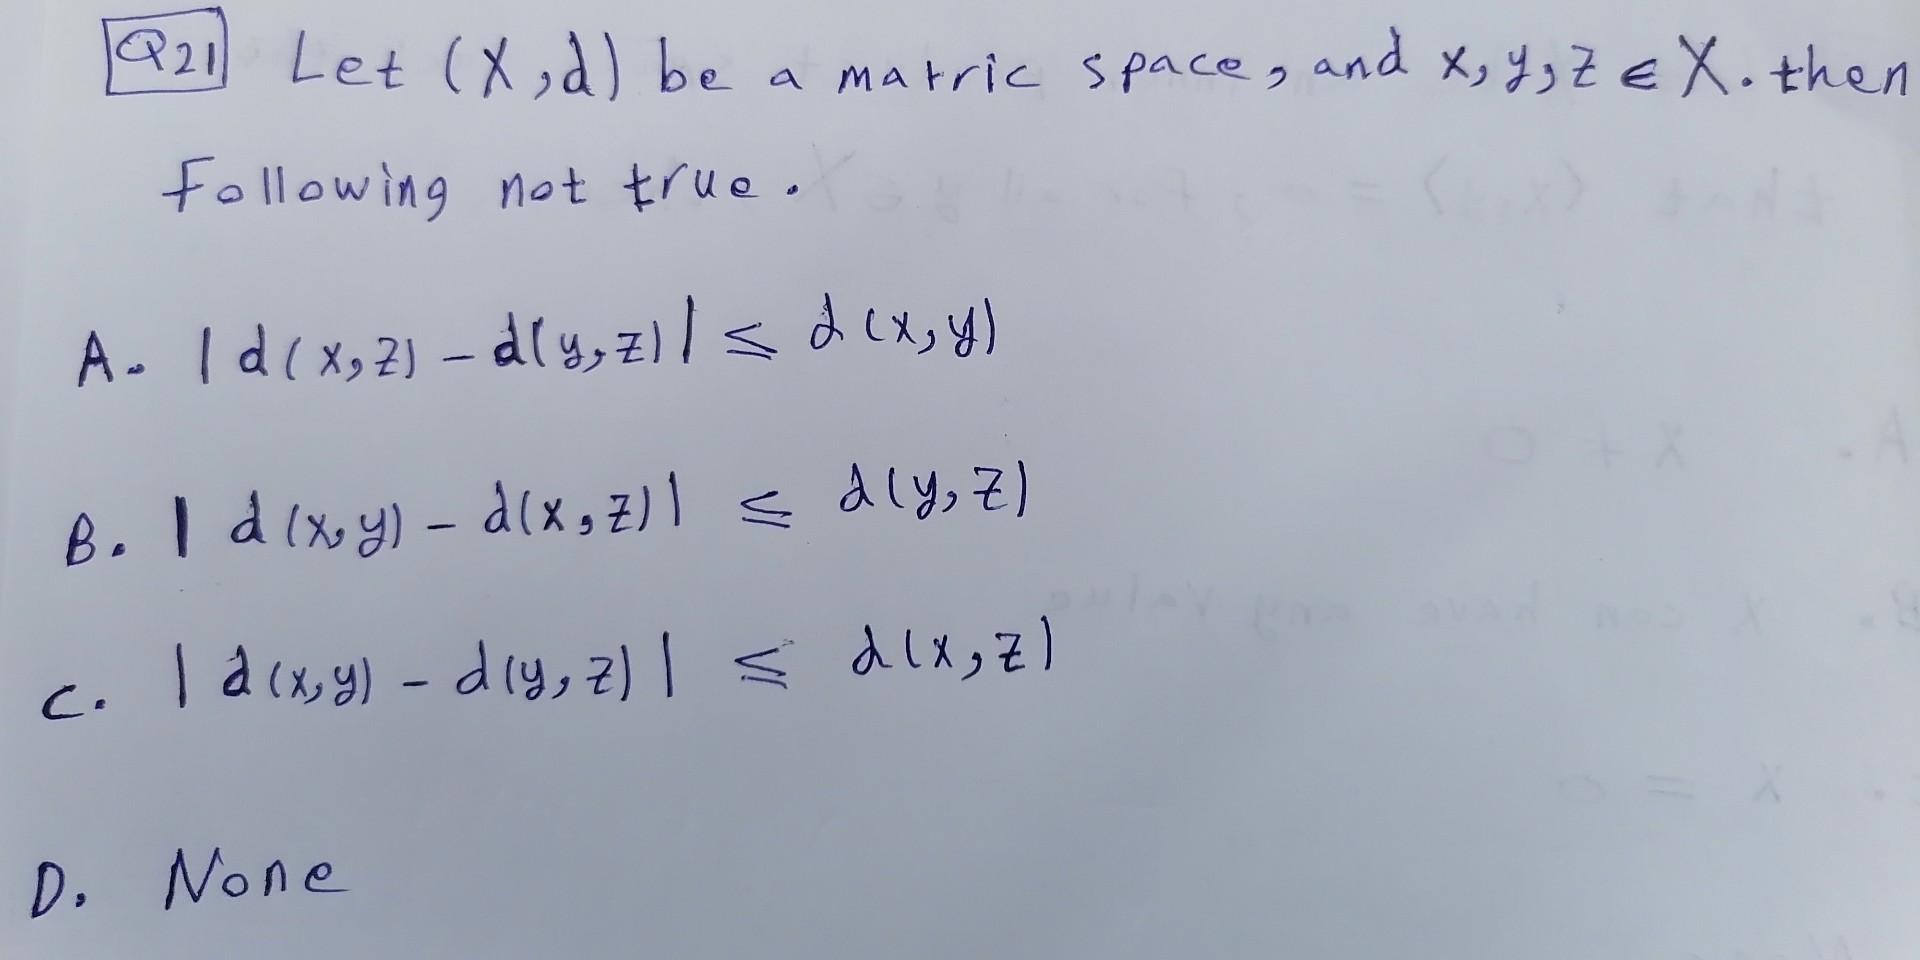 Q21 Let (X,d) be a matric space, and x,y,z ∈ X. then
Following not true.
A. |d(x,z) - d(y,z)| ≤ d(x,y)
B. |d(x,y) - d(x,z)| ≤ d(y,z)
C. |d(x,y) - d(y,z)| ≤ d(x,z)
D. None